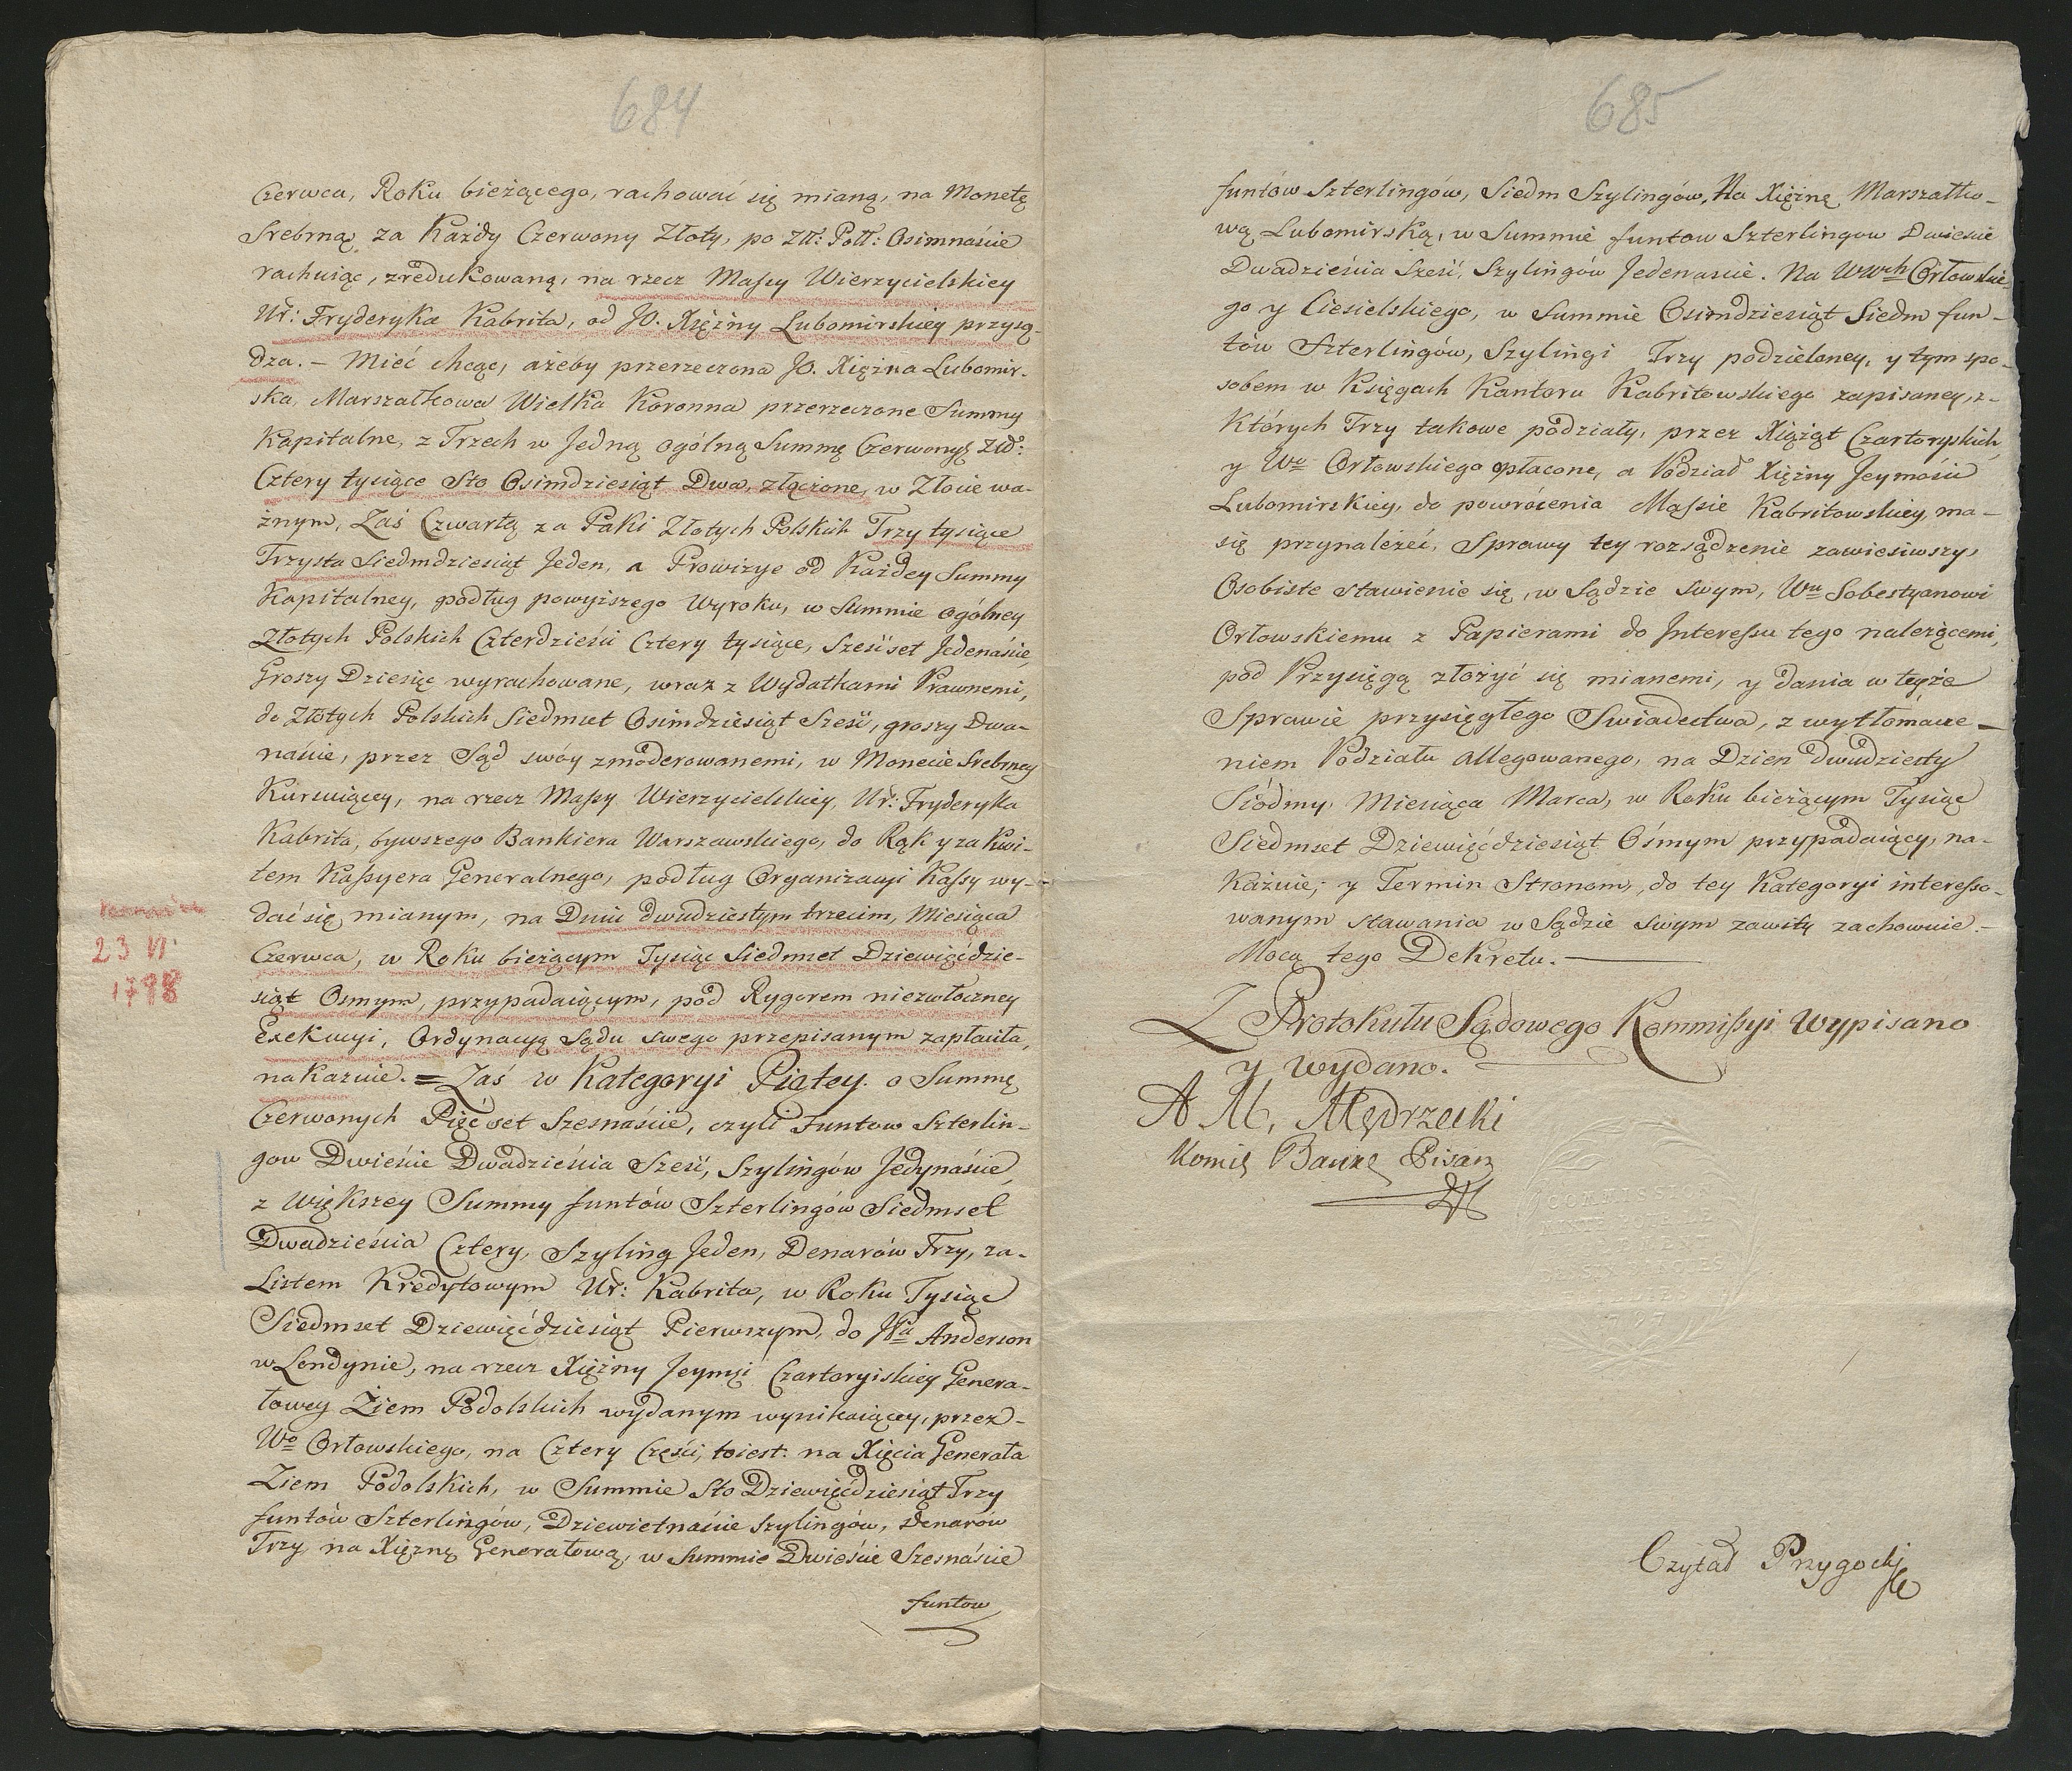 684
Czerwca, Roku bieżącego, rachować się mianą, na Monetę
Srebrną za Każdy Czerwony Złoty, po Złł: Poll: Osimnaście
rachuiąc, zredukowaną, na rzecz Massy Wierzycielskiey
Ur: Fryderyka Kabrita, od JO. Xiężny Lubomirskiey przysą-
dza. – Mieć chcąc, ażeby przerzeczona JO. Xiężna Lubomir-
ska, Marszałkowa Wielka Koronna przerzeczone Summy
Kapitalne, z Trzech w Jedną ogólną Summę Czerwonych Złł:
Cztery tysiące Sto Osimdziesiąt Dwa, złączone, w Złocie wa-
żnym, Zaś Czwartą za Paki Złotych Polskich Trzy tysiące
Trzysta Siedmdziesiąt Jeden, a Prowizye od Każdey Summy
Kapitalney, podług powyiszego Wyroku, w Summie ogólney
Złotych Polskich Czterdzieści Cztery tysiące, Sześćset Jedenaście,
Groszy Dziesięć wyrachowane, wraz z Wydatkami Prawnemi,
do Złotych Polskich Siedmset Osimdziesiąt Sześć, groszy Dwa-
naście, przez Sąd swóy zmoderowanemi, w Monecie Srebrney
Kursuiącey, na rzecz Massy Wierzycielskiey, Ur: Fryderyka
Kabrita, bywszego Bankiera Warszawskiego, do Rąk y za Kwi-
tem Kassyera Generalnego, podług Organizacyi Kassy wy-
dać się mianym, na Dniu dwudziestym trzecim, Miesiąca
23 VI
1798
Czerwca, w Roku bieżącym Tysiąc Siedmset Dziewięćdzie-
siąt Osmym, przypadaiącym, pod Rygorem niezwłoczney
Exekucyi, Ordynacyą Sądu swego przepisanym zapłaciła,
nakazuie. = Zaś w Kategoryi Piątey. o Summę
Czerwonych Pięćset Szesnaście, czyli Funtow Szterlin-
gow Dwieście Dwadzieścia Sześć, Szylingów Jedynaście,
z Większey Summy funtów Szterlingów Siedmset
Dwadzieścia Cztery, Szyling Jeden, Denarów Trzy, za-
Listem Kredytowym Ur: Kabrita, w Roku Tysiąc
Siedmset Dziewięćdziesiąt Pierwszym, do Wa Anderson
w Londynie, na rzecz Xiężny Jeymci Czartoryiskiey Genera-
łowey Ziem Podolskich wydanym wynikaiącey, przez-
Wo Orłowskiego, na Cztery Części, toiest: na Xięcia Generała
Ziem Podolskich, w Summie Sto Dziewięćdziesiąt Trzy
funtów Szterlingów, Dziewietnaście Szylingów, Denarów
Trzy, na Xiężnę Generałową, w Summie Dwieście Szesnaście
funtow
685
funtów Szterlingów, Siedm Szylingów, Na Xiężnę Marszałko-
wą Lubomirską, w Summie funtow Szterlingow Dwieście
Dwadzieścia Sześć, Szylingów Jedenaście. Na WWch Orłowskie
go y Ciesielskiego, w Summie Osimdziesiąt Siedm fun-
tów Szterlingów, Szylingi Trzy podzieloney, y tym spo-
sobem w Księgach Kantoru Kabritowskiego zapisaney, z-
Których Trzy takowe podziały, przez Xiążąt Czartoryskich,
y Wo Orłowskiego opłacone, a Podział Xiężny Jeymości
Lubomirskiey, do powrócenia Massie Kabritowskiey, ma-
się przynależeć, Sprawy tey rozsądzenie zawiesiwszy,
Osobiste stawienie się, w Sądzie swym, Wu Sobestyanowi
Orłowskiemu z Papierami do Interessu tego należącemi,
pod Przysięgą złożyć się mianemi, y dania w teyże
Sprawie przysięgłego Swiadectwa, z wytłómacze-
niem Podziału allegowanego, na Dzien Dwudziesty
Siódmy Miesiąca Marca, w Roku bieżącym Tysiąc
Siedmset Dziewięćdziesiąt Ośmym przypadaiący, na-
każuie, y Termin Stronom, do tey Kategoryi interesso-
wanym stawania w Sądzie swym zawity zachowuie.-
Mocą tego Dekretu.
Z Protokułu Sądowego Kommissyi Wypisano
y wydano.
A M, Mędrzecki
Komis Bankę Pisarz
COMMISSION
1797
Czytał Przygocki